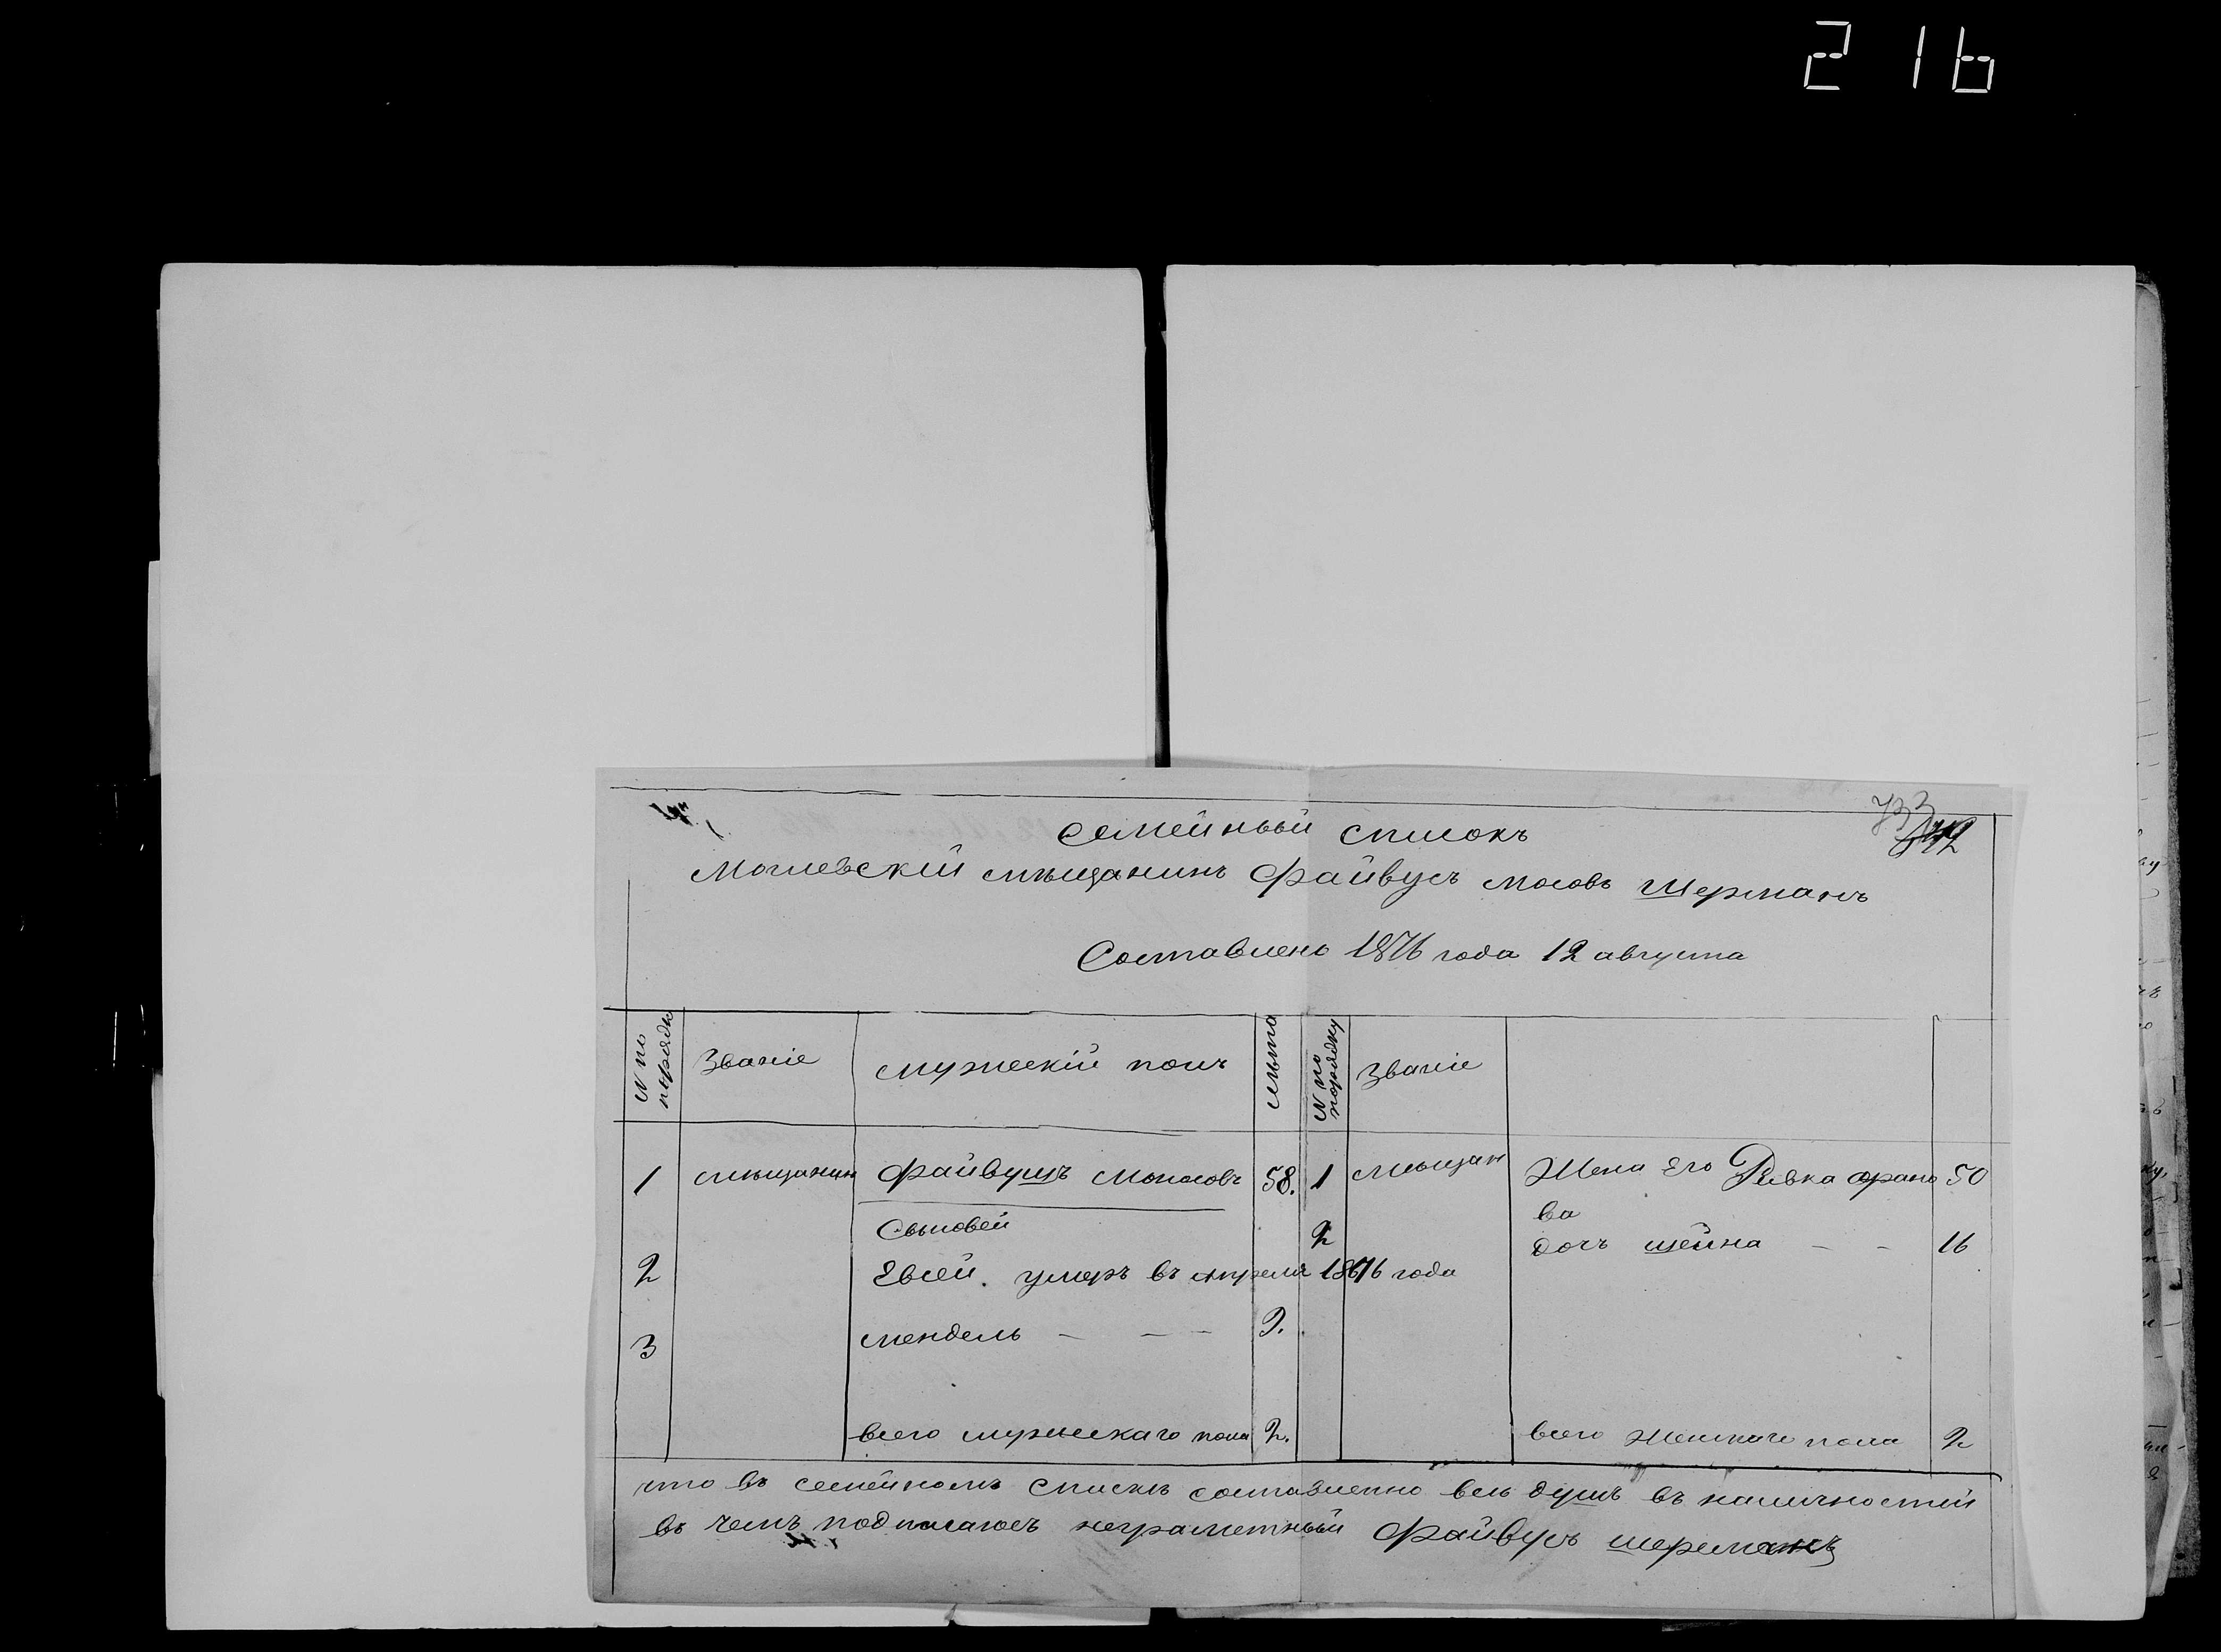 216
733
Семейный списокъ
Могилевскій мѣщанинъ Файвусъ Мосовъ Шерманъ
Составлено 1876 года 12 августа
№ по порядку
Званіе
Мужескій полъ
Лѣта
№ по порядку
Званіе
1 мѣщанин Файвушъ Моносовъ 58. 1 Мѣщан Жена Его Ривка Арано 50
ва
Сыновей
2 дочъ шейна — — 16
2 Евсей. умеръ въ апреля 1876 года
3 Мендель — — — 9.
всего мужескаго пола 2. всего Женскаго пола 2
что въ семейномъ спискѣ составленно всѣ душъ въ наличностей
въ чемъ подписаюсъ неграметный Файвусъ шерманъ